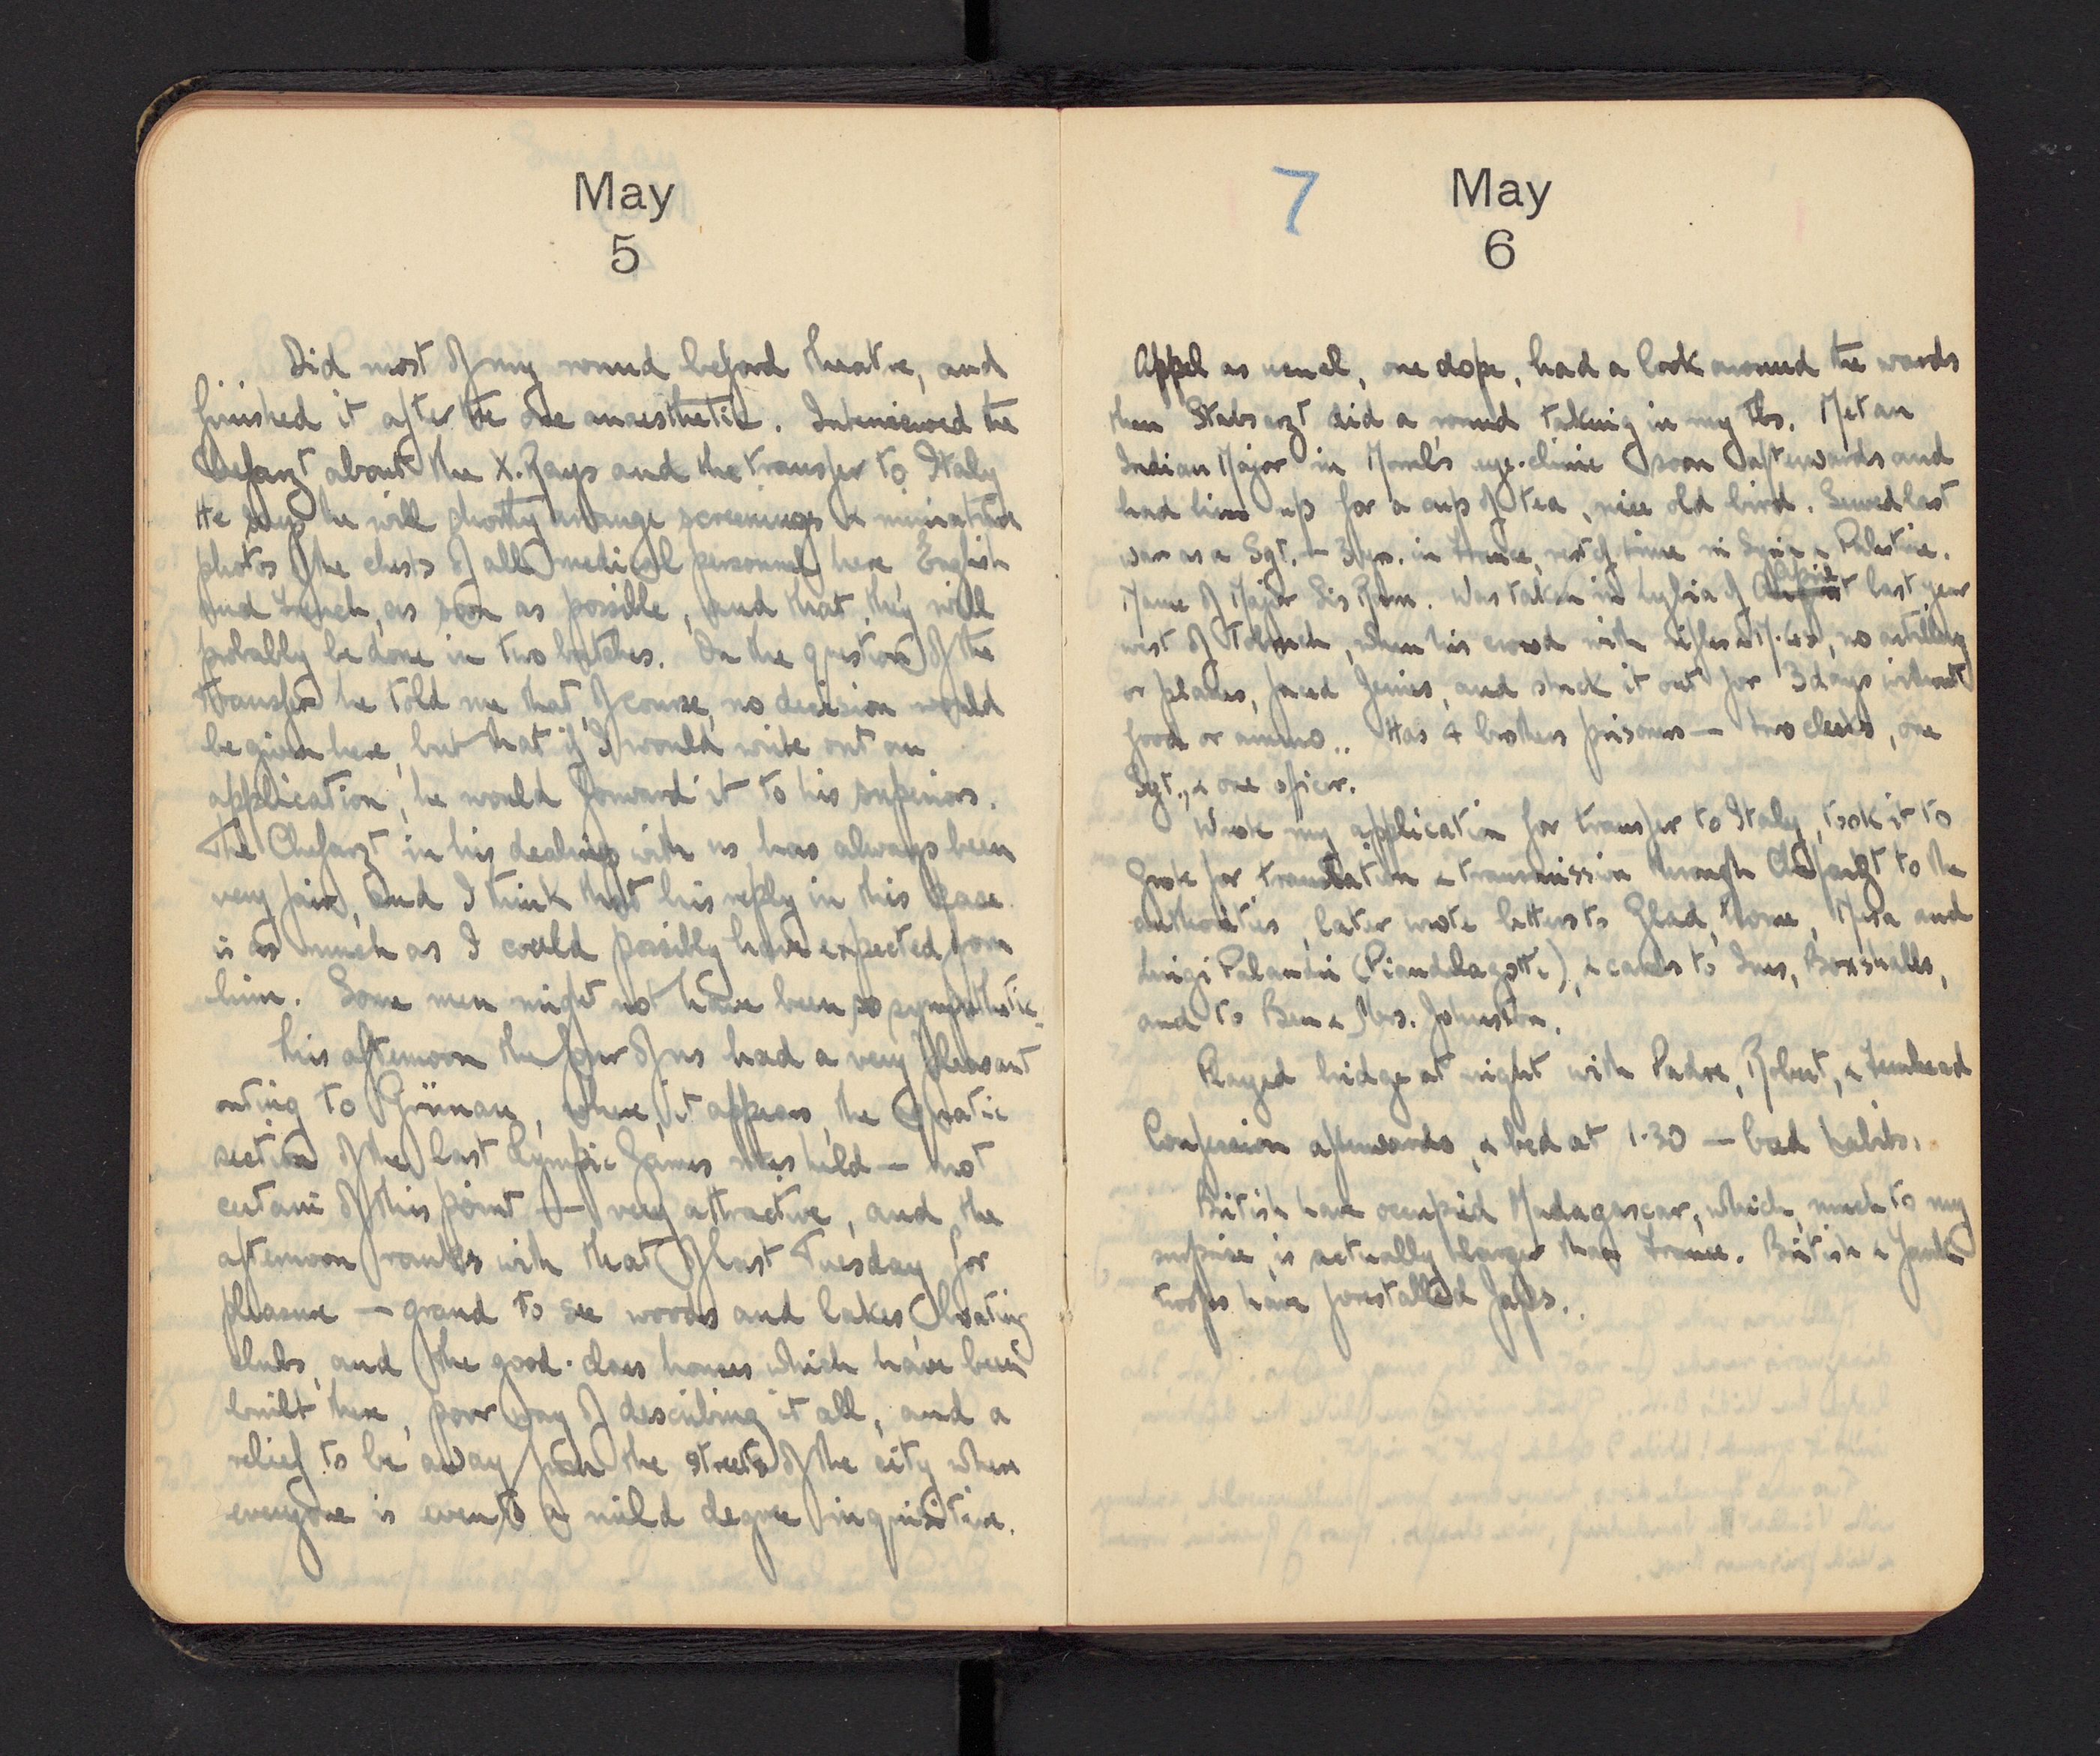 May
5
Did most of my round before theatre, and
finished it after the one anaesthetic. Interviewed the
Chefarzt about the X.Rays and the transfer to Italy
He says he will shortly arrange screenings & miniature
photos of the chests of all medical personnel here English
and French, as soon as possible, and that they will
probably be done in two batches. On the question of the
transfer he told me that, of course, no decision would
be given here, but that if I would write out an
application, he would forward it to his superiors.
The Chefarzt in his dealings with us has always been
very fair, and I think that his reply in this case
is as much as I could possibly have expected from
him. Some men might not have been so sympathetic.
This afternoon the four of us had a very pleasant
outing to Grünau, where, it appears, the aquatic
section of the last Olympic Games was held — not
certain of this point — very attractive, and the
afternoon ranks with that of last Tuesday for
pleasure — grand to see woods and lakes, boating
clubs, and the good-class houses which have been
built there, poor way of describing it all, and a
relief to be away from the streets of the city where
everyone is even to a mild degree inquisitive.
7
May
6
Appel as usual, one dope, had a look around the wards
then Stabsarzt did a round taking in my Tbs. Met an
Indian Major in eye-clinic soon afterwards and
had him up for a cup of tea, nice old bird. Served last
war as a Sgt. — 3 yrs. in France, rest of time in Syria & Palestine.
Name of Major Sis Ram. Was taken in Lybia of April last year
west of Tobruch, when his crowd with rifles & M.Gs, no artillery
or planes, faced Jerries, and stuck it out for 3 days without
food or ammo.. Has 4 brothers prisoners — two clerks, one
Sgt., & one officer.
Wrote my application for transfer to Italy, took it to
for translation & transmission through Chefarzt to the
authorities, later wrote letters to Glad, Home, and
Luigi Palandri (Piandelagotti), & cards to Ines, Boxshalls,
and to Ben & Mrs. Johnston.
Played bridge at night with Padre, Robert, &
Confession afterwards, & bed at 1.30 — bad habits.
British have occupied Madagascar, which, much to my
surprise, is actually larger than France. British & Yank
troops have forestalled Japs.